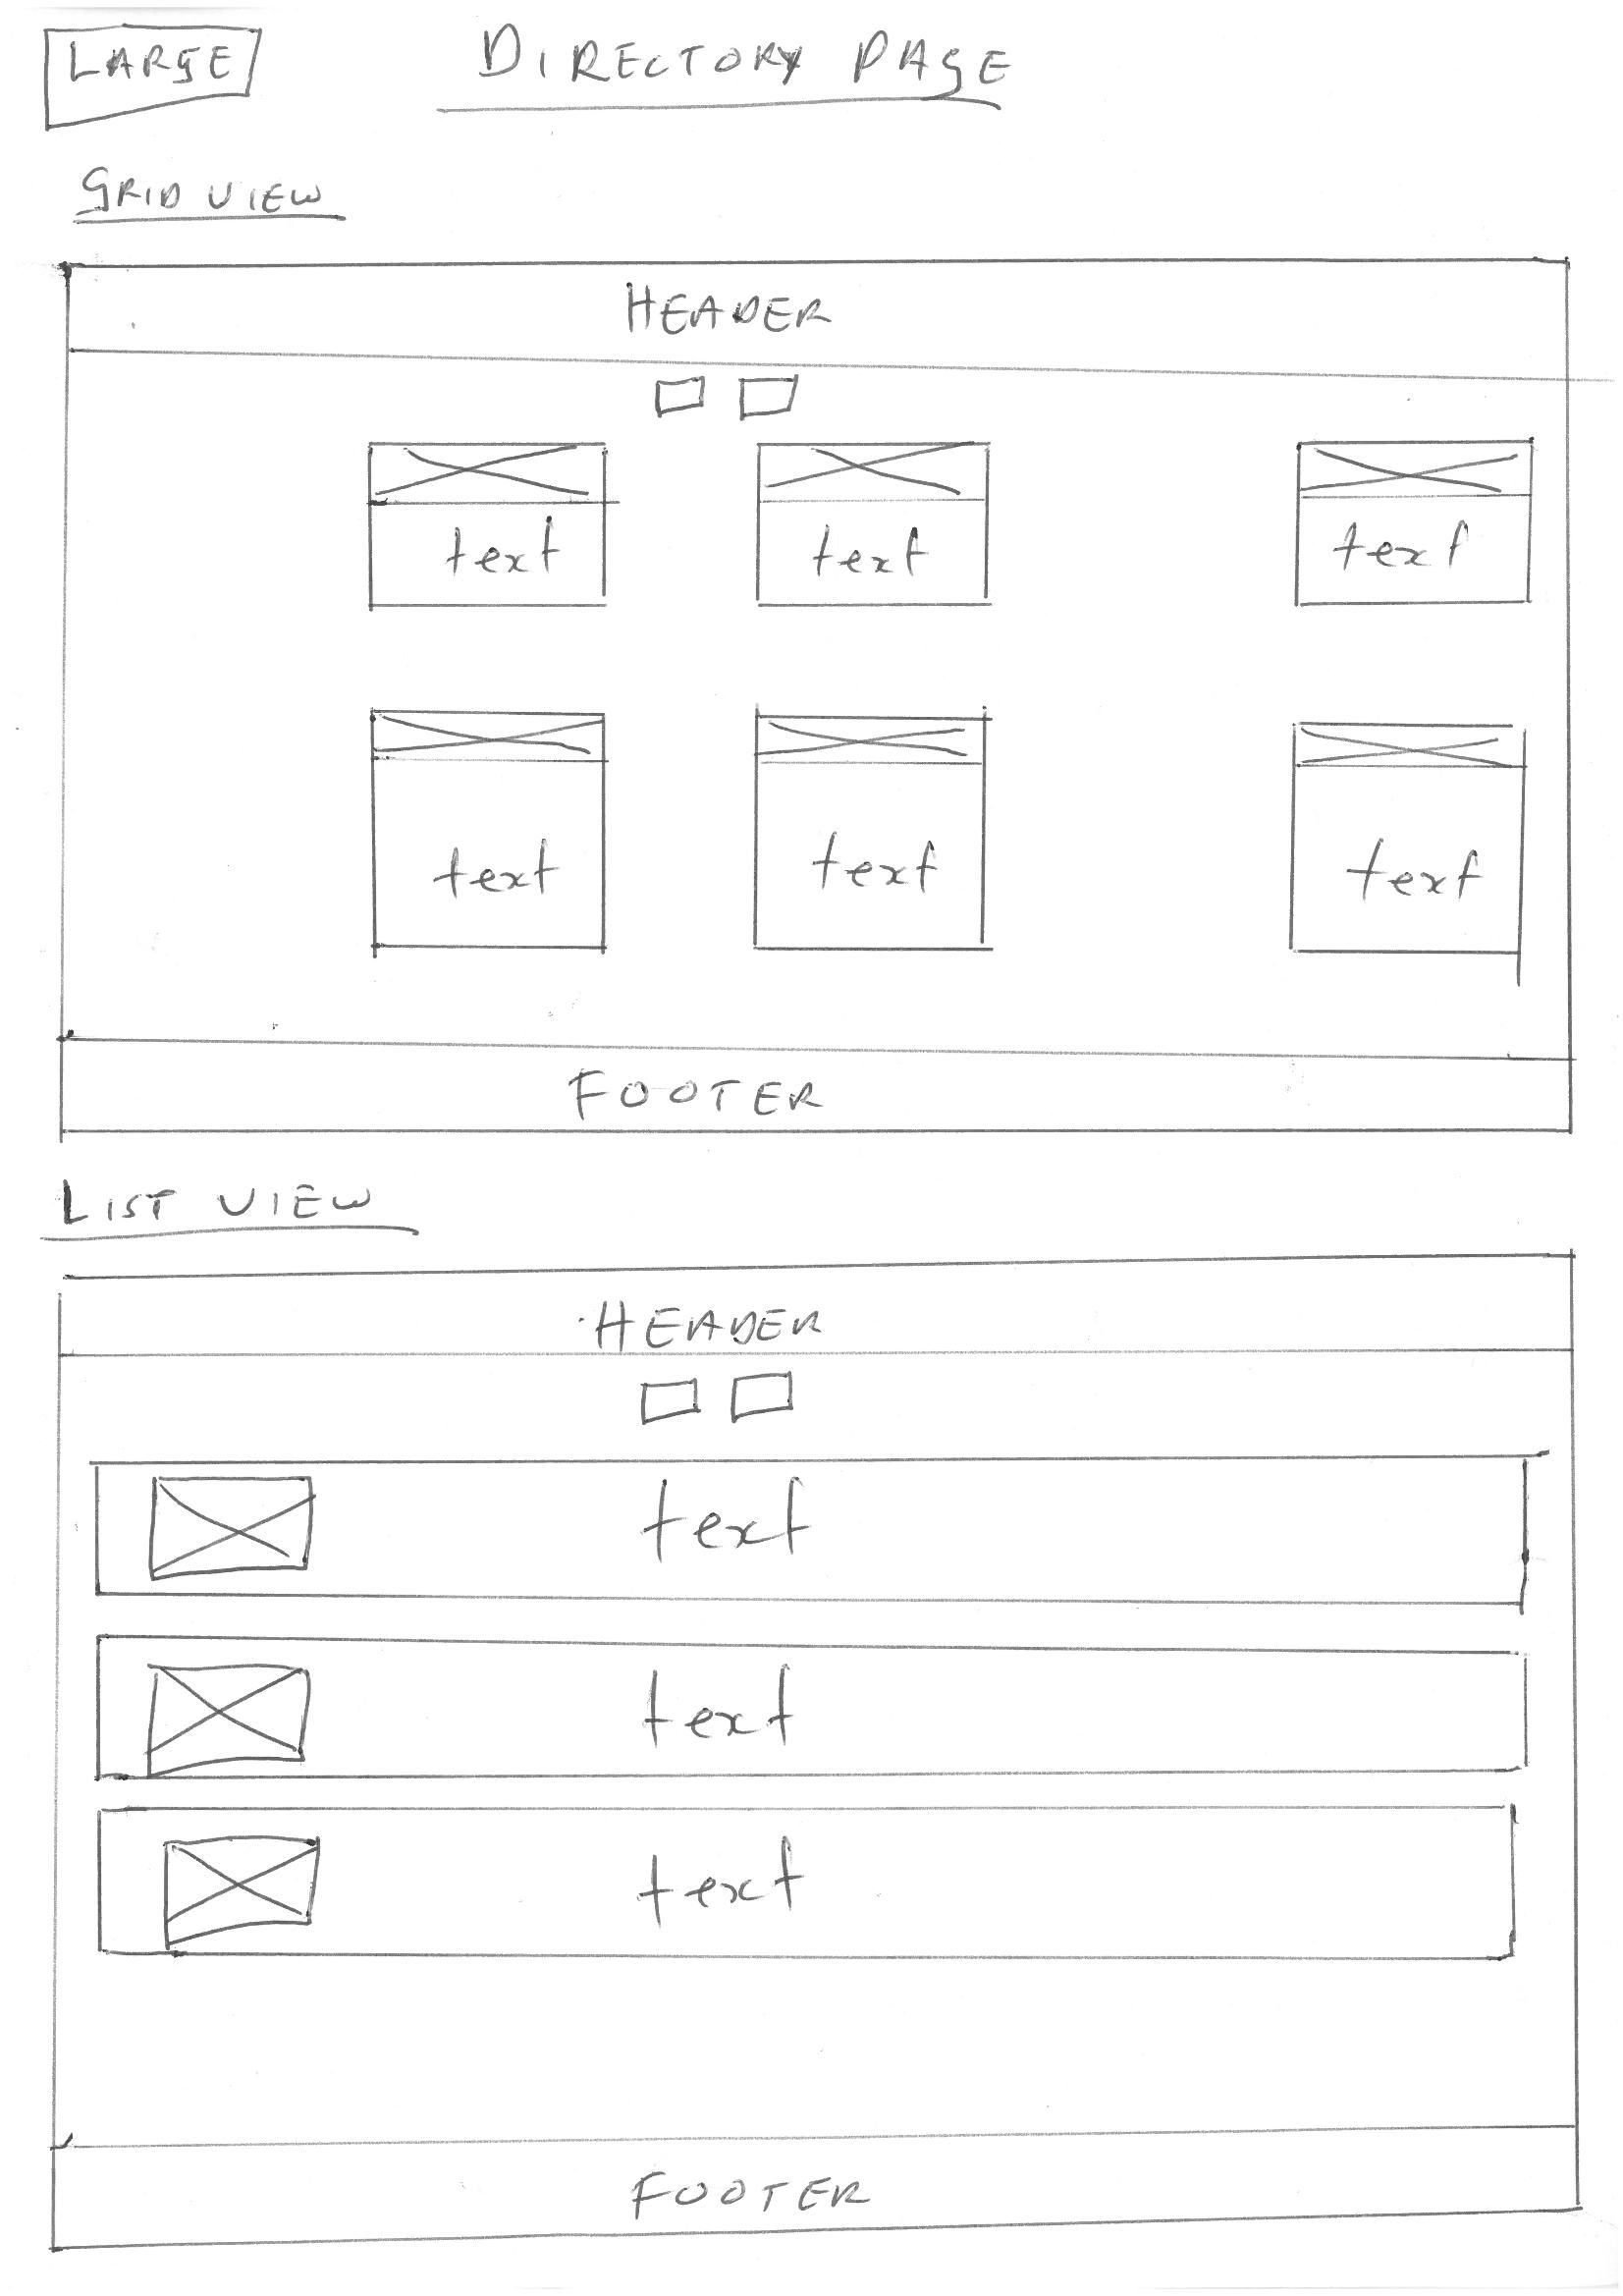 LARGE DIRECTORY PAGE
GRID VIEW
HEADER
text text text
text text text
FOOTER
LIST VIEW
HEADER
text
text
text
FOOTER